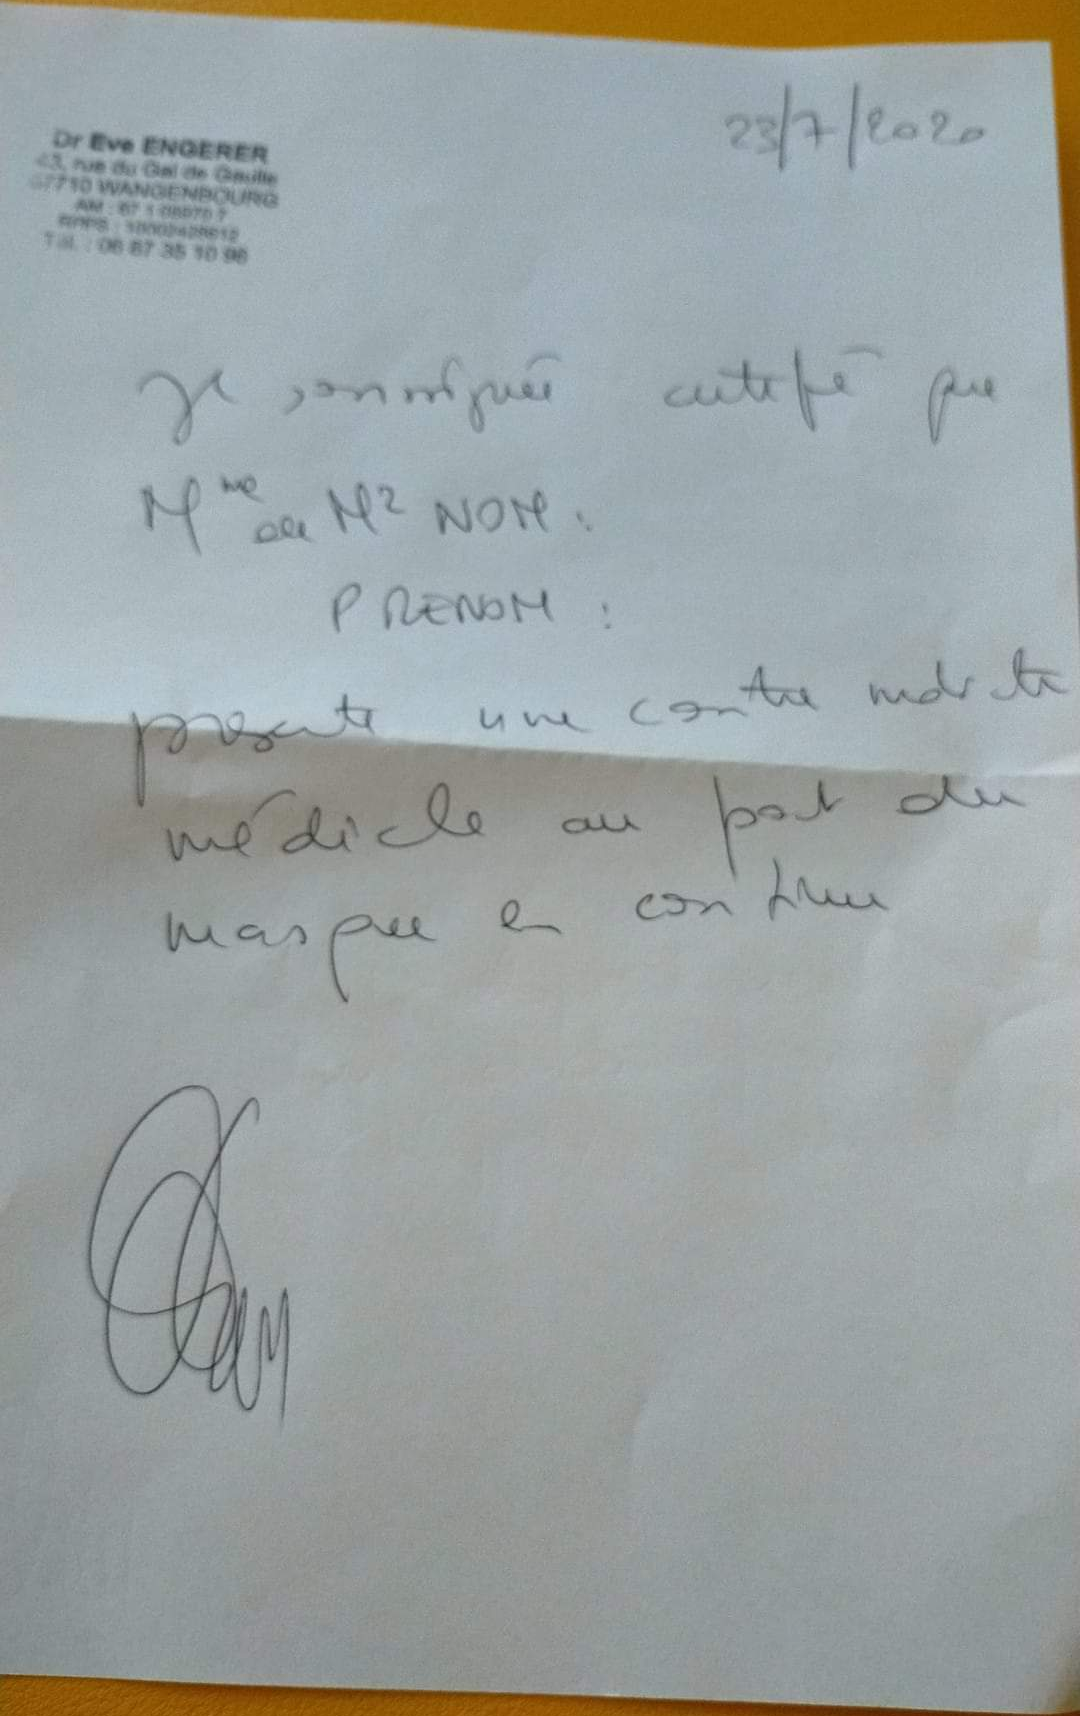 Dr Eve ENGERER
43, rue du Gal de Gaulle
67710 WANGENBOURG
AM : 67 1
RPPS :
Tél. : 06 87 35 10 96
23/7/2020
Je soussignée certifie que
Mme ou Mr NOM :
PRENOM :
présente une contre indicati
médicale au port du
masque en continu